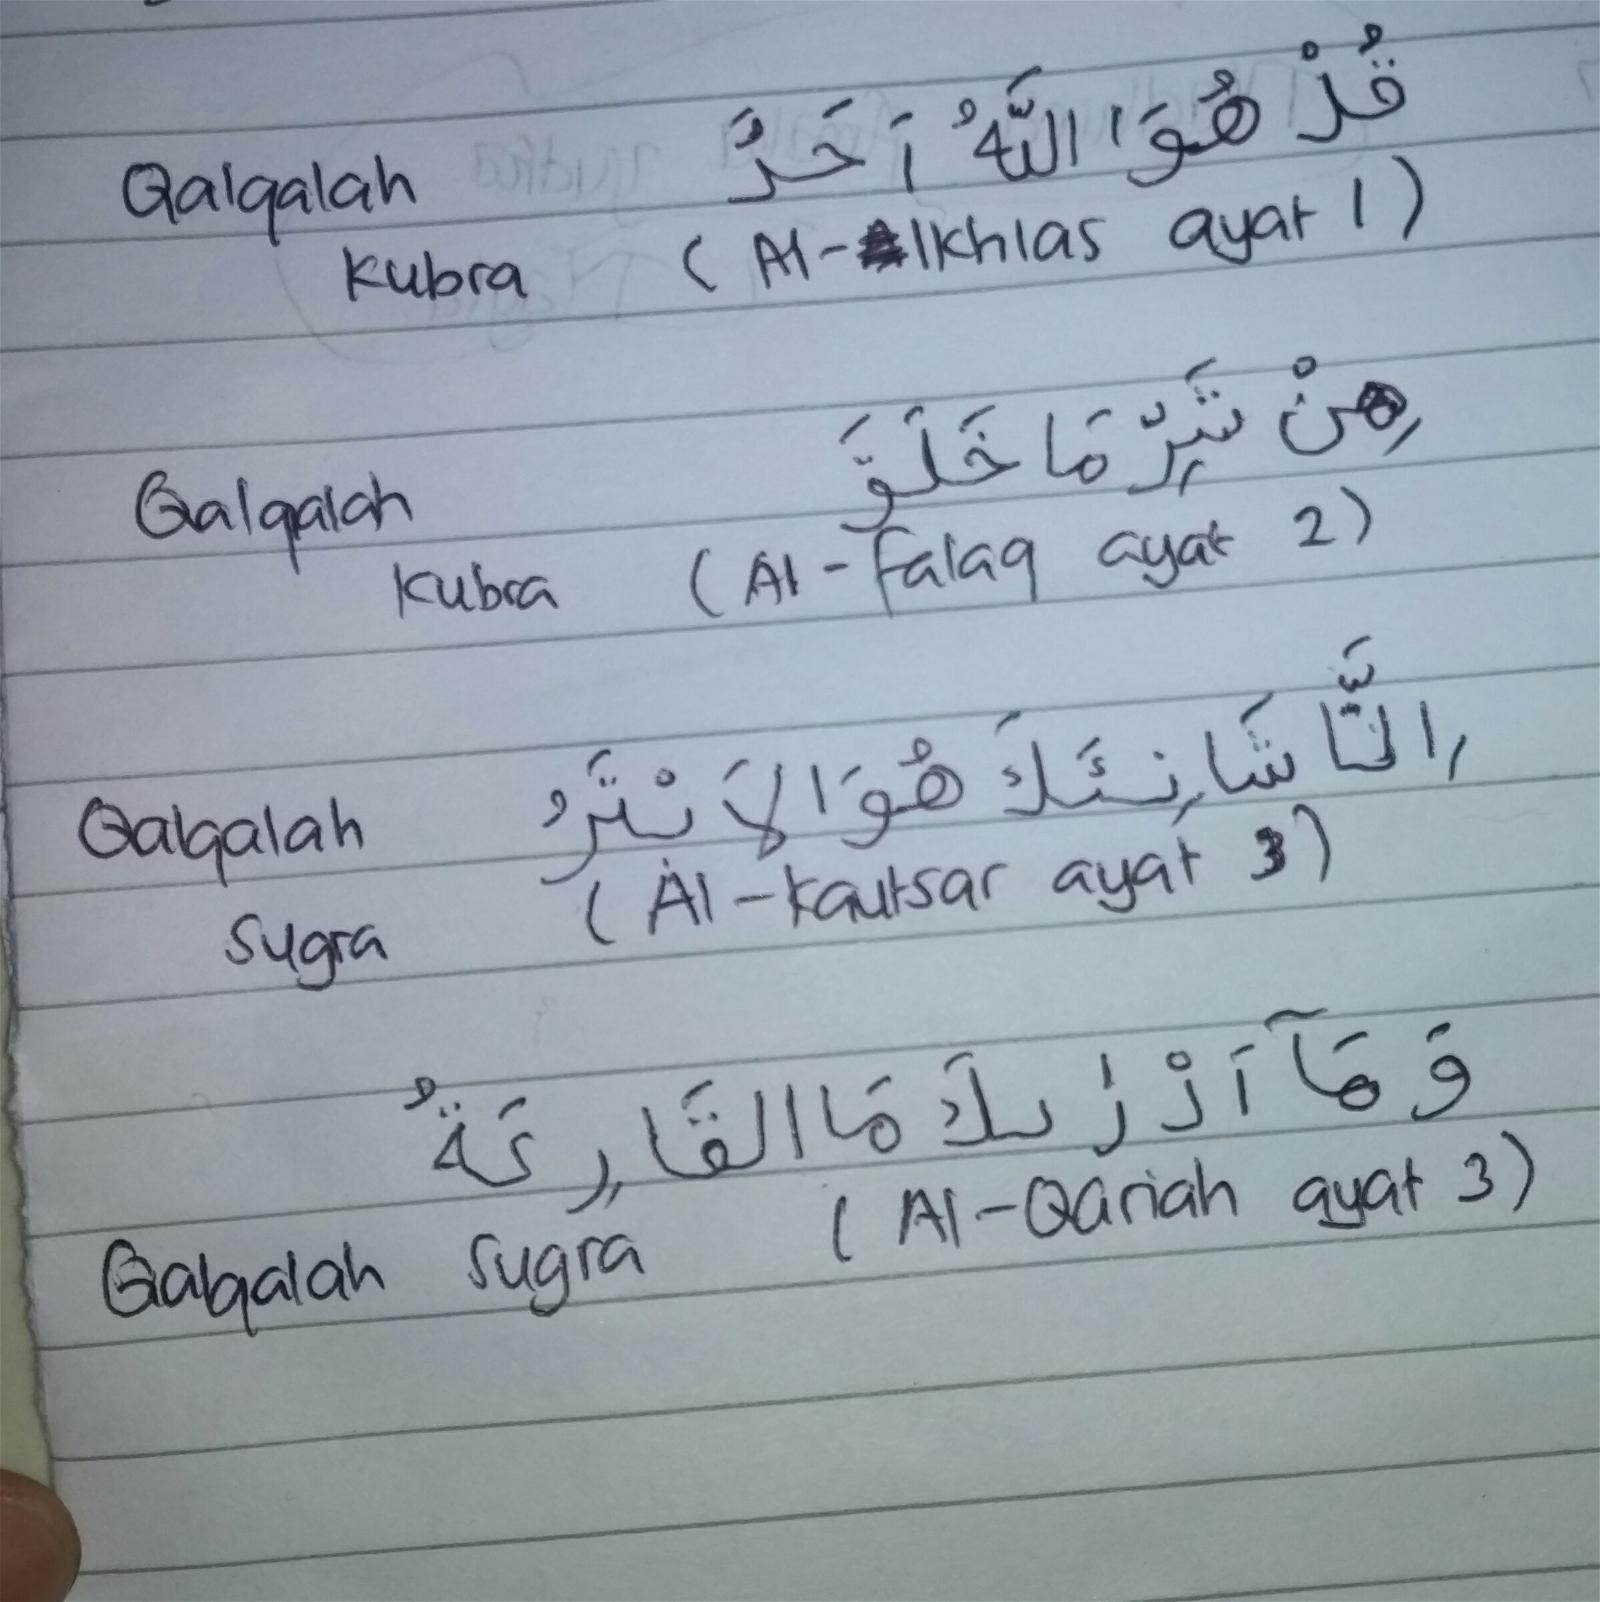 قُلْ هُوَ اللّٰهُ اَحَدٌ
Qalqalah
Kubra (Al-Ikhlas ayat 1)
مِنْ شَرِّ مَا خَلَقَ
Qalqalah
Kubra (Al-Falaq ayat 2)
اِنَّ شَانِئَكَ هُوَ الاَ بْتَرُ
Qalqalah
Sugra (Al-Kautsar ayat 3)
وَ مَآ اَدْرٰىكَ مَا القَارِعَةُ
Qalqalah Sugra (Al-Qariah ayat 3)